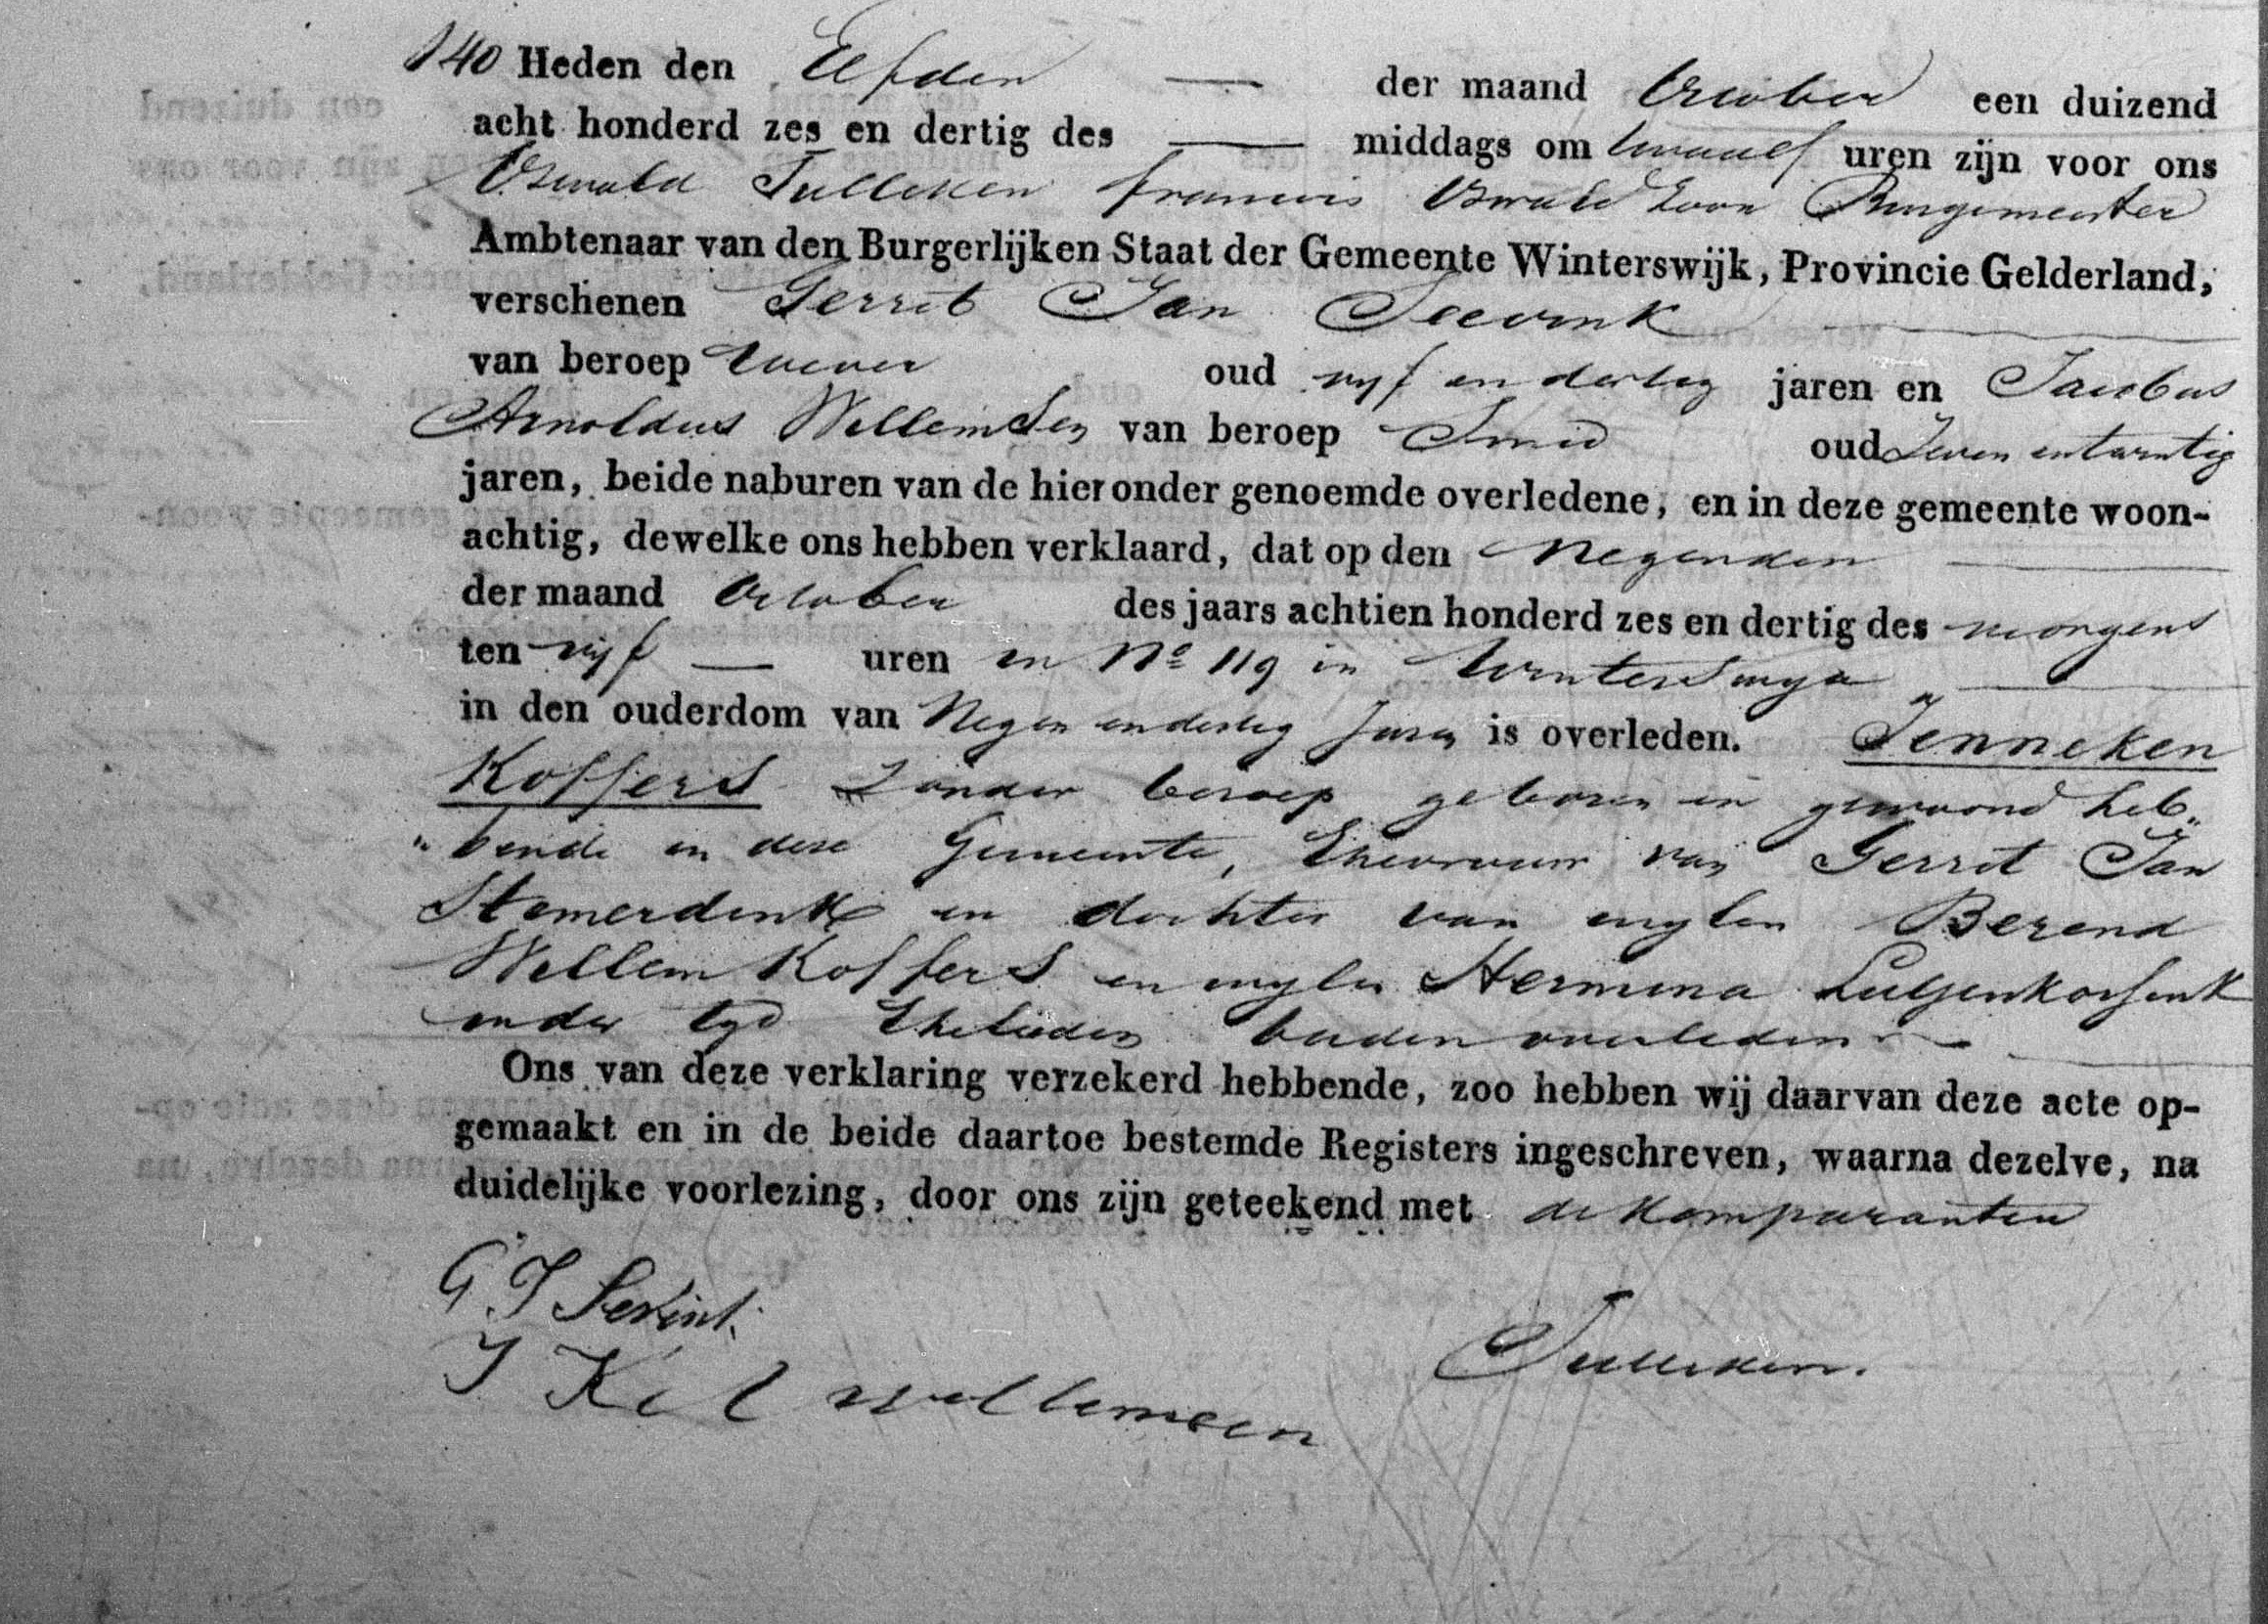 140 Heden den Elfden — der maand October een duizend
acht honderd zes en dertig des — middags om twaalf uren zijn voor ons
Oswald Tulleken francois Oswald Zoon Burgemeester
Ambtenaar van den Burgerlijken Staat der Gemeente Winterswijk, Provincie Gelderland,
verschenen Gerrit Jan Seevink
van beroep Wever oud vyf en dertig jaren en Jacobus
Arnoldus Willemsen van beroep Smid oud Zeven entwintig
jaren, beide naburen van de hier onder genoemde overledene, en in deze gemeente woon-
achtig, dewelke ons hebben verklaard, dat op den Negenden
der maand October des jaars achtien honderd zes en dertig des morgens
ten vyf — uren in No 119 in Winterswyk
in den ouderdom van Negen endertig Jaren is overleden. Jenneken
Koffers Zonder beroep geboren en gewoond heb„
„bende in deze Gemeente, Ehevrouw van Gerrit Jan
Stemerdink en dochter van wylen Berend
Willem Koffers en wylen Hermina
in der tyd Ehelieden beiden overleden —
Ons van deze verklaring verzekerd hebbende, zoo hebben wij daarvan deze acte op-
gemaakt en in de beide daartoe bestemde Registers ingeschreven, waarna dezelve, na
duidelijke voorlezing, door ons zijn geteekend met de Komparanten
G J Sevink
Tulleken.
J willemsen